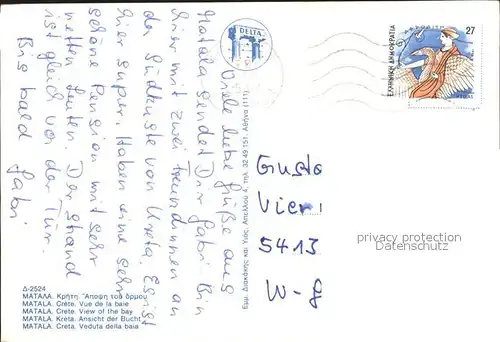 Viele liebe Grüße aus
Matala sendet Dir Gabri. Bin
hier mit zwei Freundinnen an
der Südküste von Kreta. Es ist
hier super. Haben eine sehr
schöne Pension mit sehr
netten Leuten. Der Strand
ist gleich vor der Tür.
Bis bald
Gabri
DELTA
Εμμ. Διακάκης και Υιός, Απελλού 4, τηλ. 32.49.151, Αθήνα (111)
27
ΕΛΛΗΝΙΚΗ ΔΗΜΟΚΡΑΤΙΑ
Gusto
Vieri
5413
W-G
privacy protection
Datenschutz
Δ-2524
ΜΑΤΑΛΑ. Κρήτη. Άποψη του όρμου
MATALA. Crète. Vue de la baie
MATALA. Crete. View of the bay
MATALA. Kreta. Ansicht der Bucht
MATALA. Creta. Veduta della baia